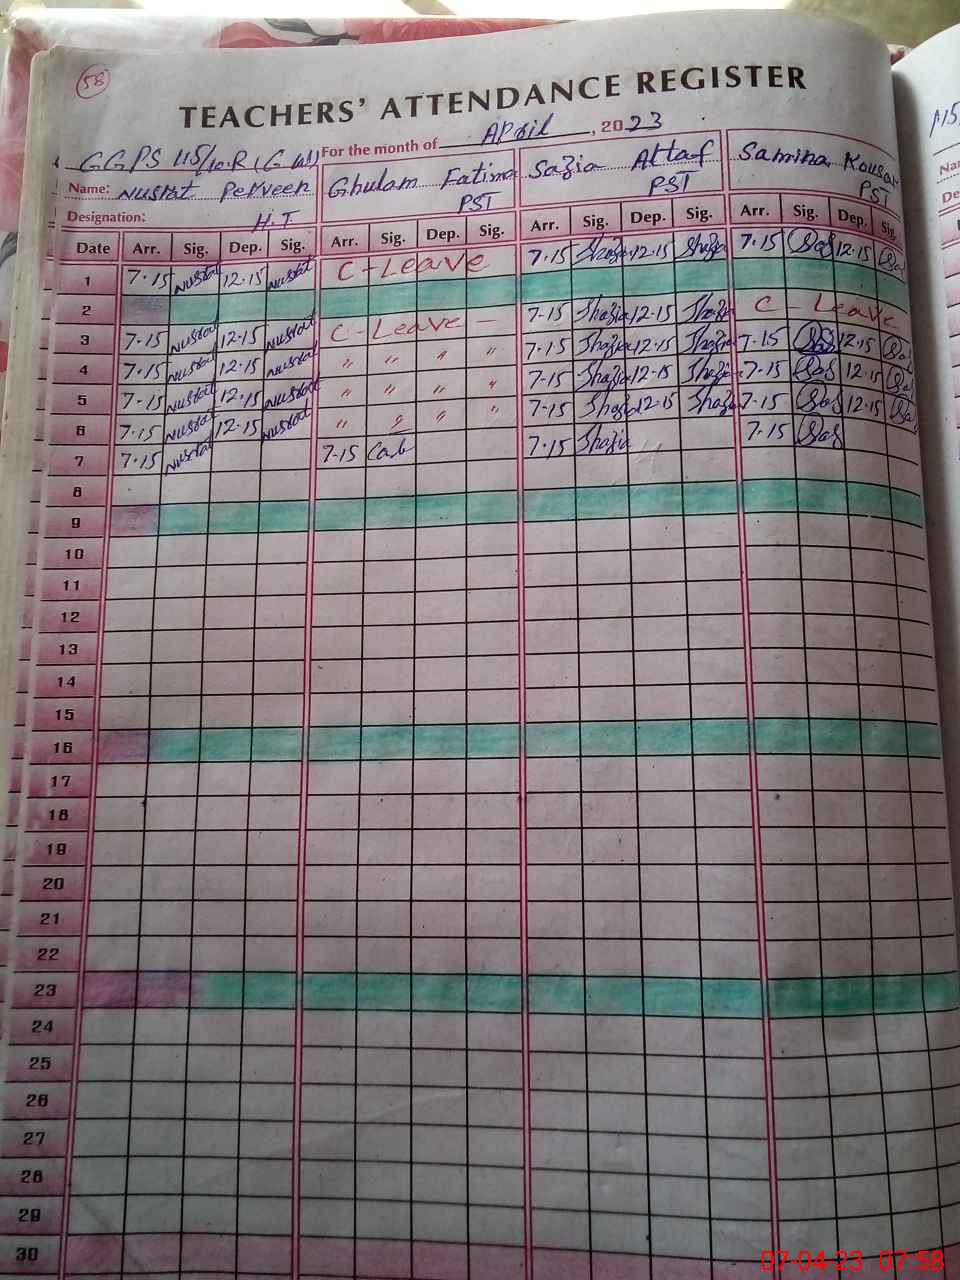 58
TEACHERS' ATTENDANCE REGISTER
GGPS 115/10.R For the month of April, 2023
Name: Nusrat Perveen Ghulam Fatima Sazia Altaf Samina Kousar
Designation: H.T PST PST PST
Date Arr. Sig. Dep. Sig. Arr. Sig. Dep. Sig. Arr. Sig. Dep. Sig. Arr. Sig. Dep. Sig.
1 7.15 Nusrat 12.15 Nusrat C-Leave 7.15 Shazia 12.15 Shazia 7.15 12.15
2
3 7.15 Nusrat 12.15 Nusrat C-Leave - 7-15 Shazia 12.15 Shazia C - Leave
4 7.15 Nusrat 12.15 Nusrat " " " " 7.15 Shazia 12.15 Shazia 7.15 12.15
5 7.15 Nusrat 12.15 Nusrat " " " " 7-15 Shazia 12.15 Shazia 7.15 12.15
6 7.15 Nusrat 12.15 Nusrat " " " " 7.15 Shazia 12.15 Shazia 7.15 12.15
7 7.15 Nusrat 7.15 7.15 Shazia 7.15
8
9
10
11
12
13
14
15
16
17
18
19
20
21
22
23
24
25
26
27
28
29
30
07-04-23 07:58